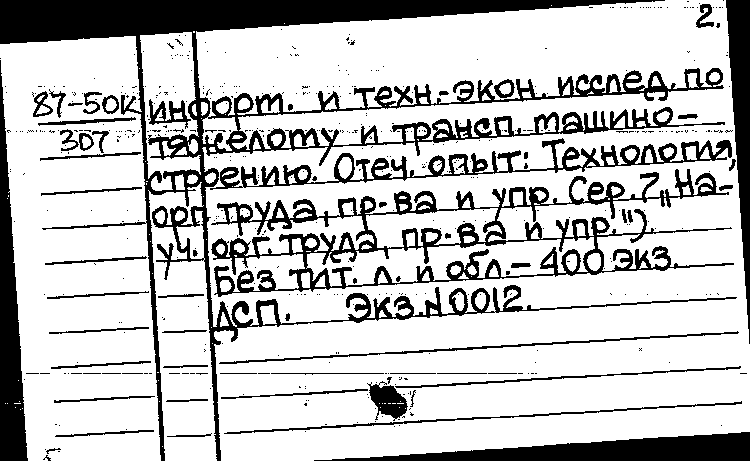 2.
87-50К информ. и техн.-экон. исслед. по
307 тяжелому и трансп. машино-
строению. Отеч. опыт: Технология,
орг. труда, пр-ва и упр. Сер. 7 „На-
уч. орг. труда, пр-ва и упр.").
Без тит. л. и обл. - 400 экз.
ДСП. Экз. N 0012.